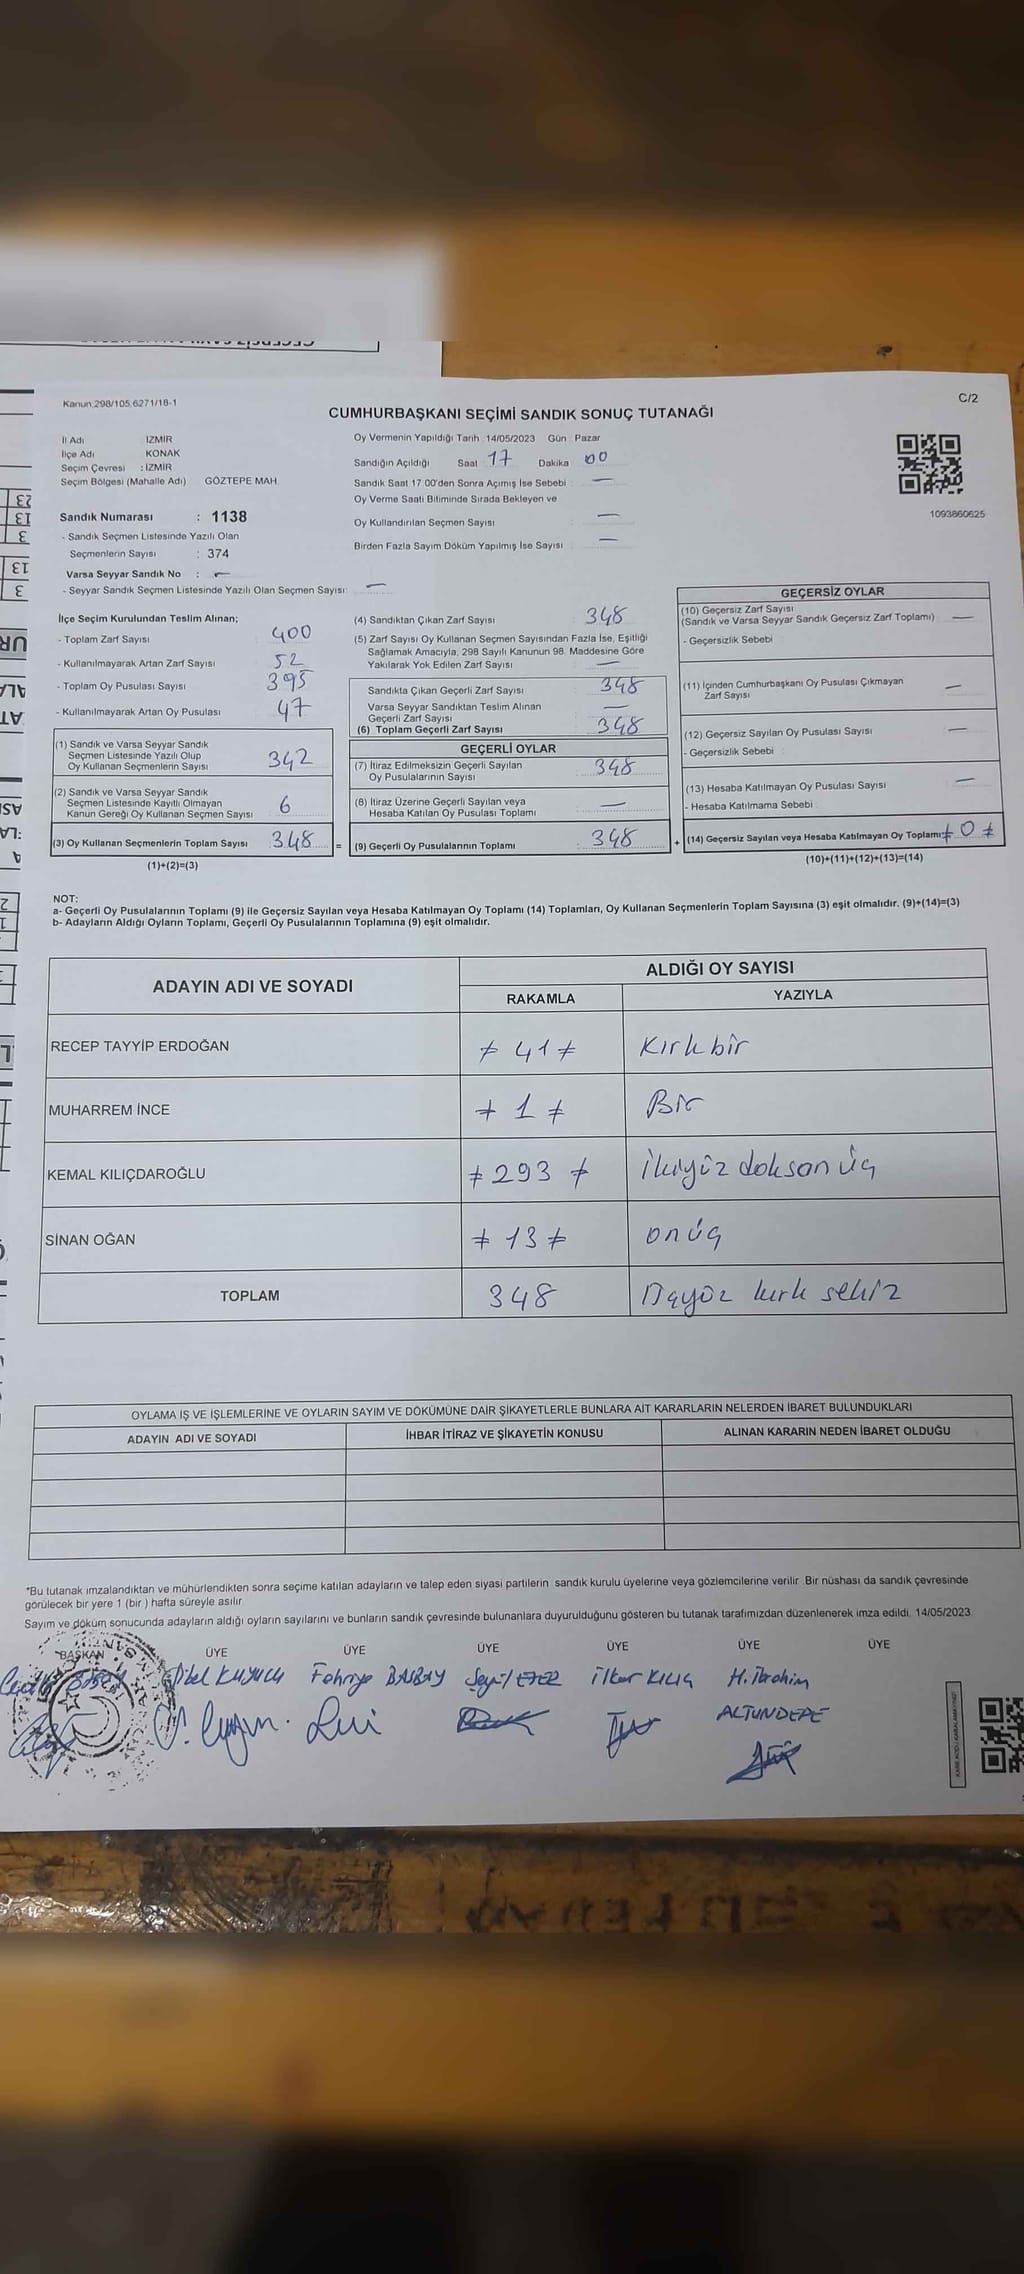 Kanun.298/105,6271/18-1
C/2
CUMHURBAŞKANI SEÇİMİ SANDIK SONUÇ TUTANAĞI
İl Adı İZMİR
İlçe Adı KONAK
Seçim Çevresi : İZMİR
Seçim Bölgesi (Mahalle Adı) GÖZTEPE MAH.
Sandık Numarası : 1138
- Sandık Seçmen Listesinde Yazılı Olan
Seçmenlerin Sayısı : 374
Varsa Seyyar Sandık No : —
- Seyyar Sandık Seçmen Listesinde Yazılı Olan Seçmen Sayısı: —
Oy Vermenin Yapıldığı Tarih :14/05/2023 Gün : Pazar
Sandığın Açıldığı Saat 17 Dakika 00
Sandık Saat 17:00'den Sonra Açımış İse Sebebi : —
Oy Verme Saati Bitiminde Sırada Bekleyen ve
Oy Kullandırılan Seçmen Sayısı : —
Birden Fazla Sayım Döküm Yapılmış İse Sayısı : —
1093860625
İlçe Seçim Kurulundan Teslim Alınan;
- Toplam Zarf Sayısı : 400
- Kullanılmayarak Artan Zarf Sayısı : 52
- Toplam Oy Pusulası Sayısı : 395
- Kullanılmayarak Artan Oy Pusulası : 47
(1) Sandık ve Varsa Seyyar Sandık
Seçmen Listesinde Yazılı Olup
Oy Kullanan Seçmenlerin Sayısı : 342
(2) Sandık ve Varsa Seyyar Sandık
Seçmen Listesinde Kayıtlı Olmayan
Kanun Gereği Oy Kullanan Seçmen Sayısı : 6
(3) Oy Kullanan Seçmenlerin Toplam Sayısı : 348 =
(1)+(2)=(3)
(4) Sandıktan Çıkan Zarf Sayısı : 348
(5) Zarf Sayısı Oy Kullanan Seçmen Sayısından Fazla İse, Eşitliği
Sağlamak Amacıyla; 298 Sayılı Kanunun 98. Maddesine Göre
Yakılarak Yok Edilen Zarf Sayısı : —
Sandıkta Çıkan Geçerli Zarf Sayısı : 348
Varsa Seyyar Sandıktan Teslim Alınan
Geçerli Zarf Sayısı : —
(6) Toplam Geçerli Zarf Sayısı : 348
GEÇERLİ OYLAR
(7) İtiraz Edilmeksizin Geçerli Sayılan
Oy Pusulalarının Sayısı : 348
(8) İtiraz Üzerine Geçerli Sayılan veya
Hesaba Katılan Oy Pusulası Toplamı : —
(9) Geçerli Oy Pusulalarının Toplamı : 348 +
GEÇERSİZ OYLAR
(10) Geçersiz Zarf Sayısı
(Sandık ve Varsa Seyyar Sandık Geçersiz Zarf Toplamı) : —
- Geçersizlik Sebebi :
(11) İçinden Cumhurbaşkanı Oy Pusulası Çıkmayan
Zarf Sayısı : —
(12) Geçersiz Sayılan Oy Pusulası Sayısı : —
- Geçersizlik Sebebi :
(13) Hesaba Katılmayan Oy Pusulası Sayısı : —
- Hesaba Katılmama Sebebi :
(14) Geçersiz Sayılan veya Hesaba Katılmayan Oy Toplamı: ≠ 0 ≠
(10)+(11)+(12)+(13)=(14)
NOT:
a- Geçerli Oy Pusulalarının Toplamı (9) ile Geçersiz Sayılan veya Hesaba Katılmayan Oy Toplamı (14) Toplamları, Oy Kullanan Seçmenlerin Toplam Sayısına (3) eşit olmalıdır. (9)+(14)=(3)
b- Adayların Aldığı Oyların Toplamı, Geçerli Oy Pusulalarının Toplamına (9) eşit olmalıdır.
ADAYIN ADI VE SOYADI ALDIĞI OY SAYISI
RAKAMLA YAZIYLA
RECEP TAYYİP ERDOĞAN ≠ 41 ≠ Kırkbir
MUHARREM İNCE ≠ 1 ≠ Bir
KEMAL KILIÇDAROĞLU ≠ 293 ≠ İkiyüz doksan üç
SİNAN OĞAN ≠ 13 ≠ onüç
TOPLAM 348 Üçyüz kırk sekiz
OYLAMA İŞ VE İŞLEMLERİNE VE OYLARIN SAYIM VE DÖKÜMÜNE DAİR ŞİKAYETLERLE BUNLARA AİT KARARLARIN NELERDEN İBARET BULUNDUKLARI
ADAYIN ADI VE SOYADI İHBAR İTİRAZ VE ŞİKAYETİN KONUSU ALINAN KARARIN NEDEN İBARET OLDUĞU
*Bu tutanak imzalandıktan ve mühürlendikten sonra seçime katılan adayların ve talep eden siyasi partilerin sandık kurulu üyelerine veya gözlemcilerine verilir. Bir nüshası da sandık çevresinde
görülecek bir yere 1 (bir ) hafta süreyle asılır.
Sayım ve döküm sonucunda adayların aldığı oyların sayılarını ve bunların sandık çevresinde bulunanlara duyurulduğunu gösteren bu tutanak tarafımızdan düzenlenerek imza edildi. 14/05/2023
BAŞKAN ÜYE ÜYE ÜYE ÜYE ÜYE ÜYE
Sibel KUYUCU Fahriye BALBAY Seyit ETER İlker KILIÇ H. İbrahim
ALTUNDEPE